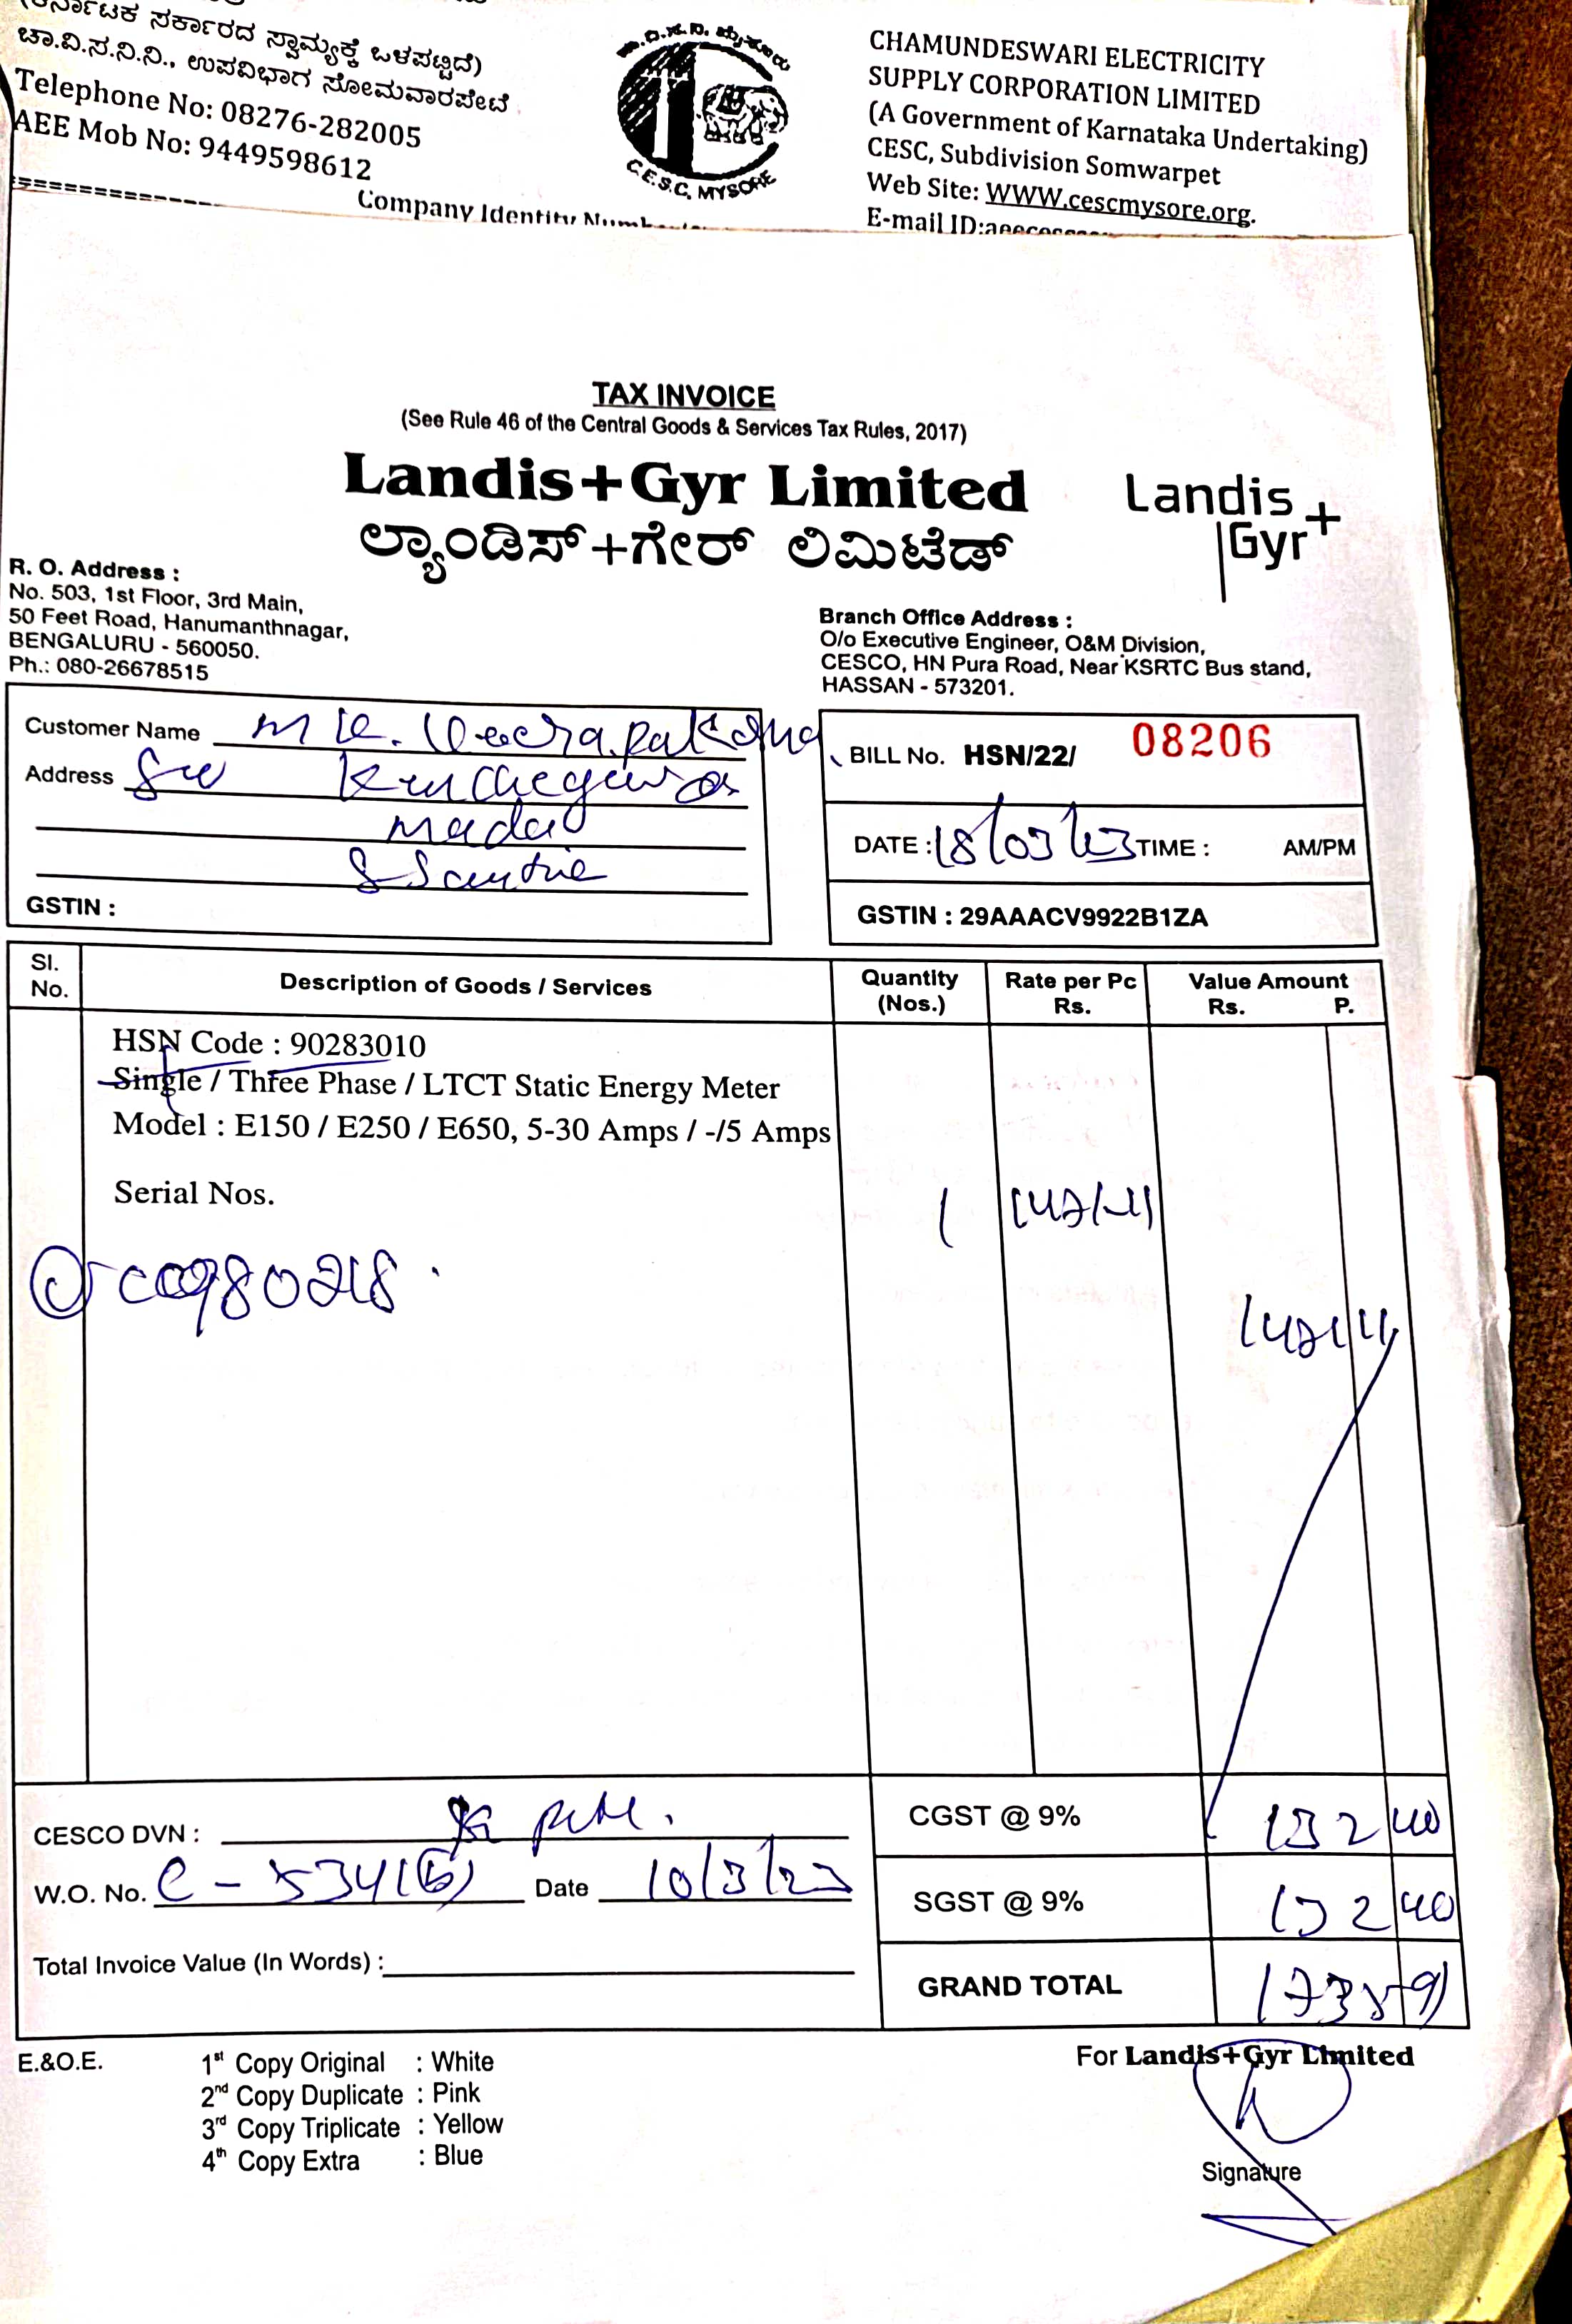 ಕರ್ನಾಟಕ ಸರ್ಕಾರದ ಸ್ವಾಮ್ಯಕ್ಕೆ ಒಳಪಟ್ಟಿದೆ)
ಚಾ.ವಿ.ಸ.ನಿ.ನಿ., ಉಪವಿಭಾಗ ಸೋಮವಾರಪೇಟೆ
Telephone No: 08276-282005
AEE Mob No: 9449598612
Company Identity
C.E.S.C. MYSORE
CHAMUNDESWARI ELECTRICITY
SUPPLY CORPORATION LIMITED
(A Government of Karnataka Undertaking)
CESC, Subdivision Somwarpet
Web Site: WWW.cescmysore.org.
E-mail ID:
TAX INVOICE
(See Rule 46 of the Central Goods & Services Tax Rules, 2017)
Landis+Gyr Limited
Landis+
Gyr
ಲ್ಯಾಂಡಿಸ್+ಗೇರ್ ಲಿಮಿಟೆಡ್
R. O. Address :
No. 503, 1st Floor, 3rd Main,
50 Feet Road, Hanumanthnagar,
BENGALURU - 560050.
Ph.: 080-26678515
Branch Office Address :
O/o Executive Engineer, O&M Division,
CESCO, HN Pura Road, Near KSRTC Bus stand,
HASSAN - 573201.
Customer Name
Address
GSTIN :
BILL No. HSN/22/ 08206
DATE : 18/03/23 TIME : AM/PM
GSTIN : 29AAACV9922B1ZA
Sl. No. Description of Goods / Services Quantity (Nos.) Rate per Pc Rs. Value Amount Rs. P.
HSN Code : 90283010
Single / Three Phase / LTCT Static Energy Meter
Model : E150 / E250 / E650, 5-30 Amps / -/5 Amps
Serial Nos.
1
CESCO DVN :
W.O. No. Date 10/3/23
Total Invoice Value (In Words) :
CGST @ 9% 132 40
SGST @ 9% 132 40
GRAND TOTAL
E.&O.E.
1st Copy Original : White
2nd Copy Duplicate : Pink
3rd Copy Triplicate : Yellow
4th Copy Extra : Blue
For Landis+Gyr Limited
Signature